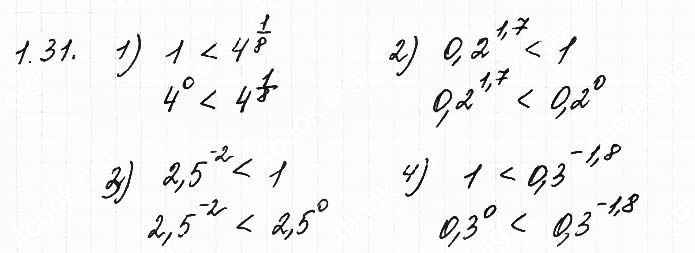 1.31. 1) 1 < 4^{1/8} 2) 0,2^{1,7} < 1
4^0 < 4^{1/8} 0,2^{1,7} < 0,2^0
3) 2,5^{-2} < 1 4) 1 < 0,3^{-1,8}
2,5^{-2} < 2,5^0 0,3^0 < 0,3^{-1,8}